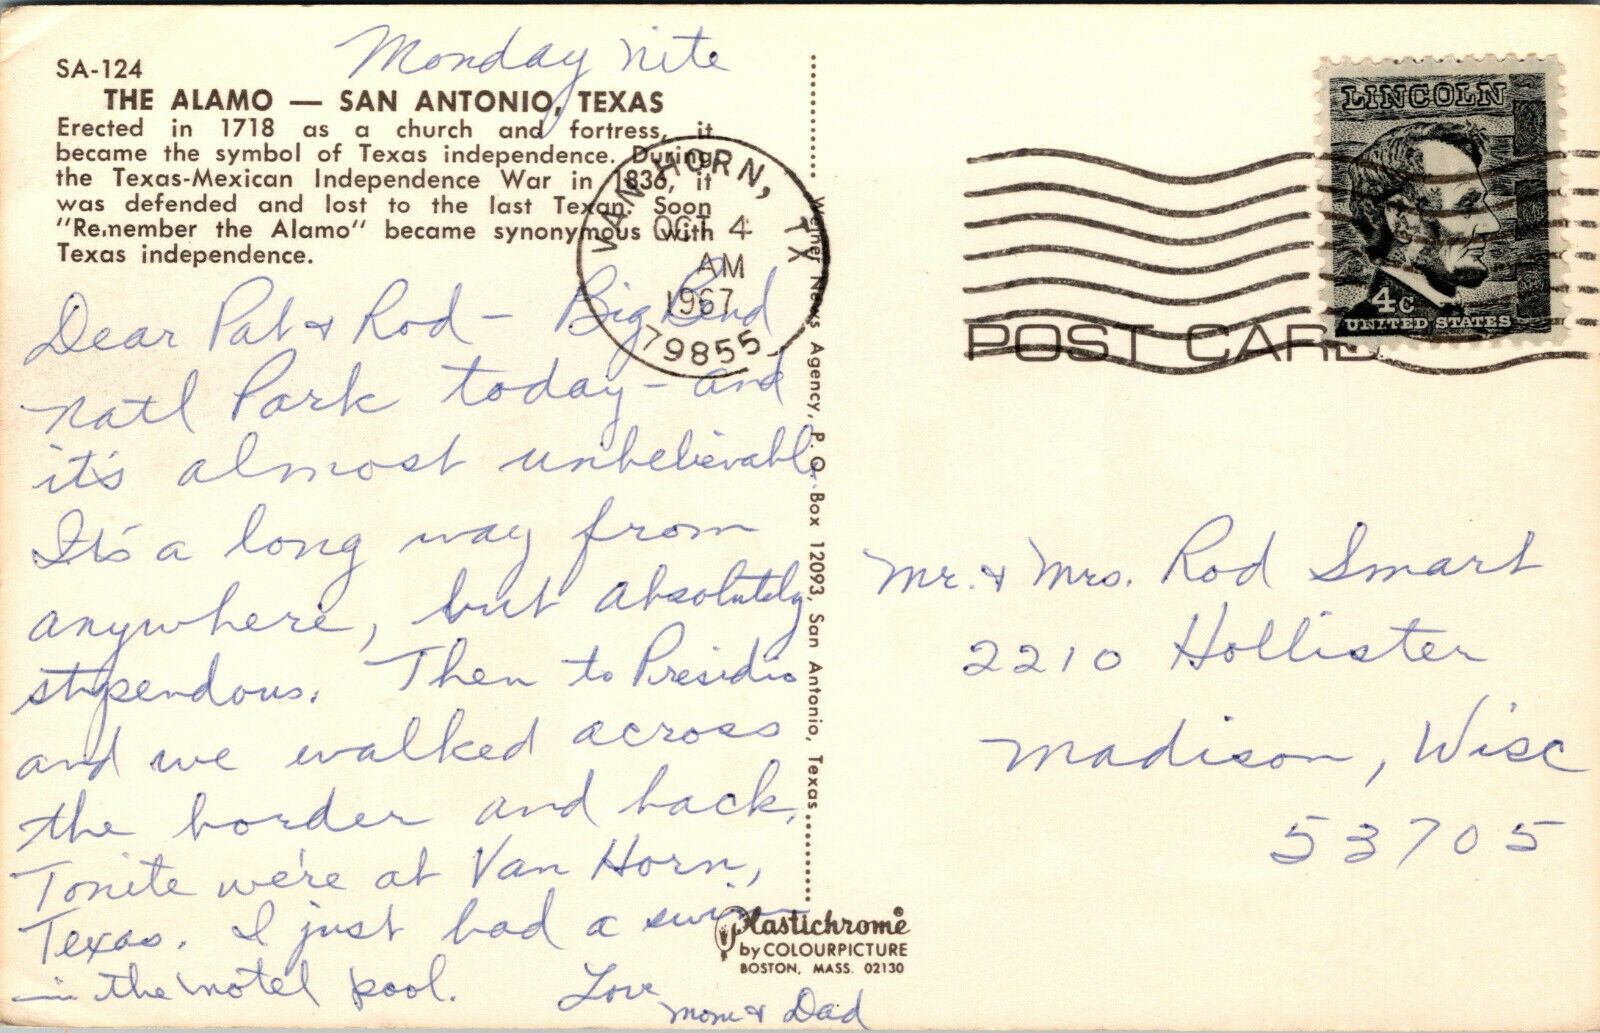 Monday nite
SA-124
THE ALAMO — SAN ANTONIO, TEXAS
Erected in 1718 as a church and fortress, it
became the symbol of Texas independence. During
the Texas-Mexican Independence War in 1836, it
was defended and lost to the last Texan. Soon
"Re.nember the Alamo" became synonymous with
Texas independence.
Dear Pat & Rod - Big Bend
Natl Park today - and
it's almost unbelievable.
It's a long way from
anywhere, but absolutely
stupendous. Then to Presidio
and we walked across
the border and back.
Tonite we're at Van Horn,
Texas. I just had a swim
in the motel pool. Love
Mom & Dad
VAN HORN, TX
OCT 4
AM
1967
79855
Weiner News Agency, P. O. Box 12093, San Antonio, Texas
Plastichrome®
by COLOURPICTURE
BOSTON, MASS. 02130
LINCOLN
4c
UNITED STATES
POST CARD
Mr. & Mrs. Rod Smart
2210 Hollister
Madison, Wisc
53705